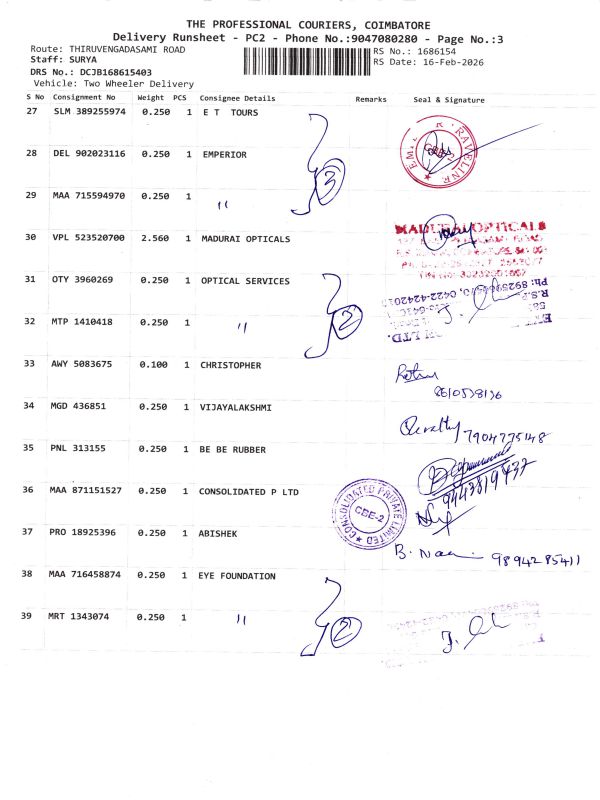 THE PROFESSIONAL COURIERS, COIMBATORE
Delivery Runsheet - PC2 - Phone No.:9047080280 - Page No.:3
Route: THIRUVENGADASAMI ROAD
RS No.: 1686154
Staff: SURYA
RS Date: 16-Feb-2026
DRS No.: DCJB168615403
Vehicle: Two Wheeler Delivery
S No Consignment No Weight PCS Consignee Details Remarks Seal & Signature
27 SLM 389255974 0.250 1 E T TOURS
28 DEL 902023116 0.250 1 EMPERIOR
3
29 MAA 715594970 0.250 1 "
30 VPL 523520700 2.560 1 MADURAI OPTICALS
MADURAI OPTICALS
31 OTY 3960269 0.250 1 OPTICAL SERVICES
32 MTP 1410418 0.250 1 "
2
33 AWY 5083675 0.100 1 CHRISTOPHER
34 MGD 436851 0.250 1 VIJAYALAKSHMI
7904775148
35 PNL 313155 0.250 1 BE BE RUBBER
9443819437
36 MAA 871151527 0.250 1 CONSOLIDATED P LTD
CONSOLIDATED PRIVATE LIMITED
CBE-2
37 PRO 18925396 0.250 1 ABISHEK
9894285411
38 MAA 716458874 0.250 1 EYE FOUNDATION
39 MRT 1343074 0.250 1 "
2